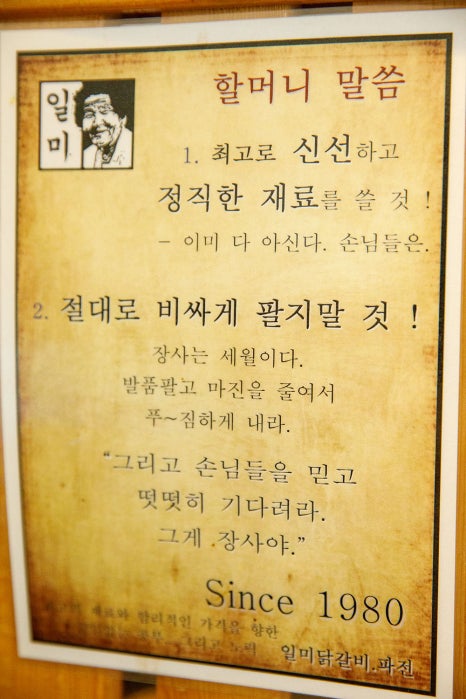 일미
할머니 말씀
1. 최고로 신선하고
정직한 재료를 쓸 것 !
- 이미 다 아신다. 손님들은.
2. 절대로 비싸게 팔지말 것 !
장사는 세월이다.
발품팔고 마진을 줄여서
푸~짐하게 내라.
“그리고 손님들을 믿고
떳떳히 기다려라.
그게 장사야.”
Since 1980
재료와 합리적인 가격을 향한
그리고 노력
일미닭갈비.파전